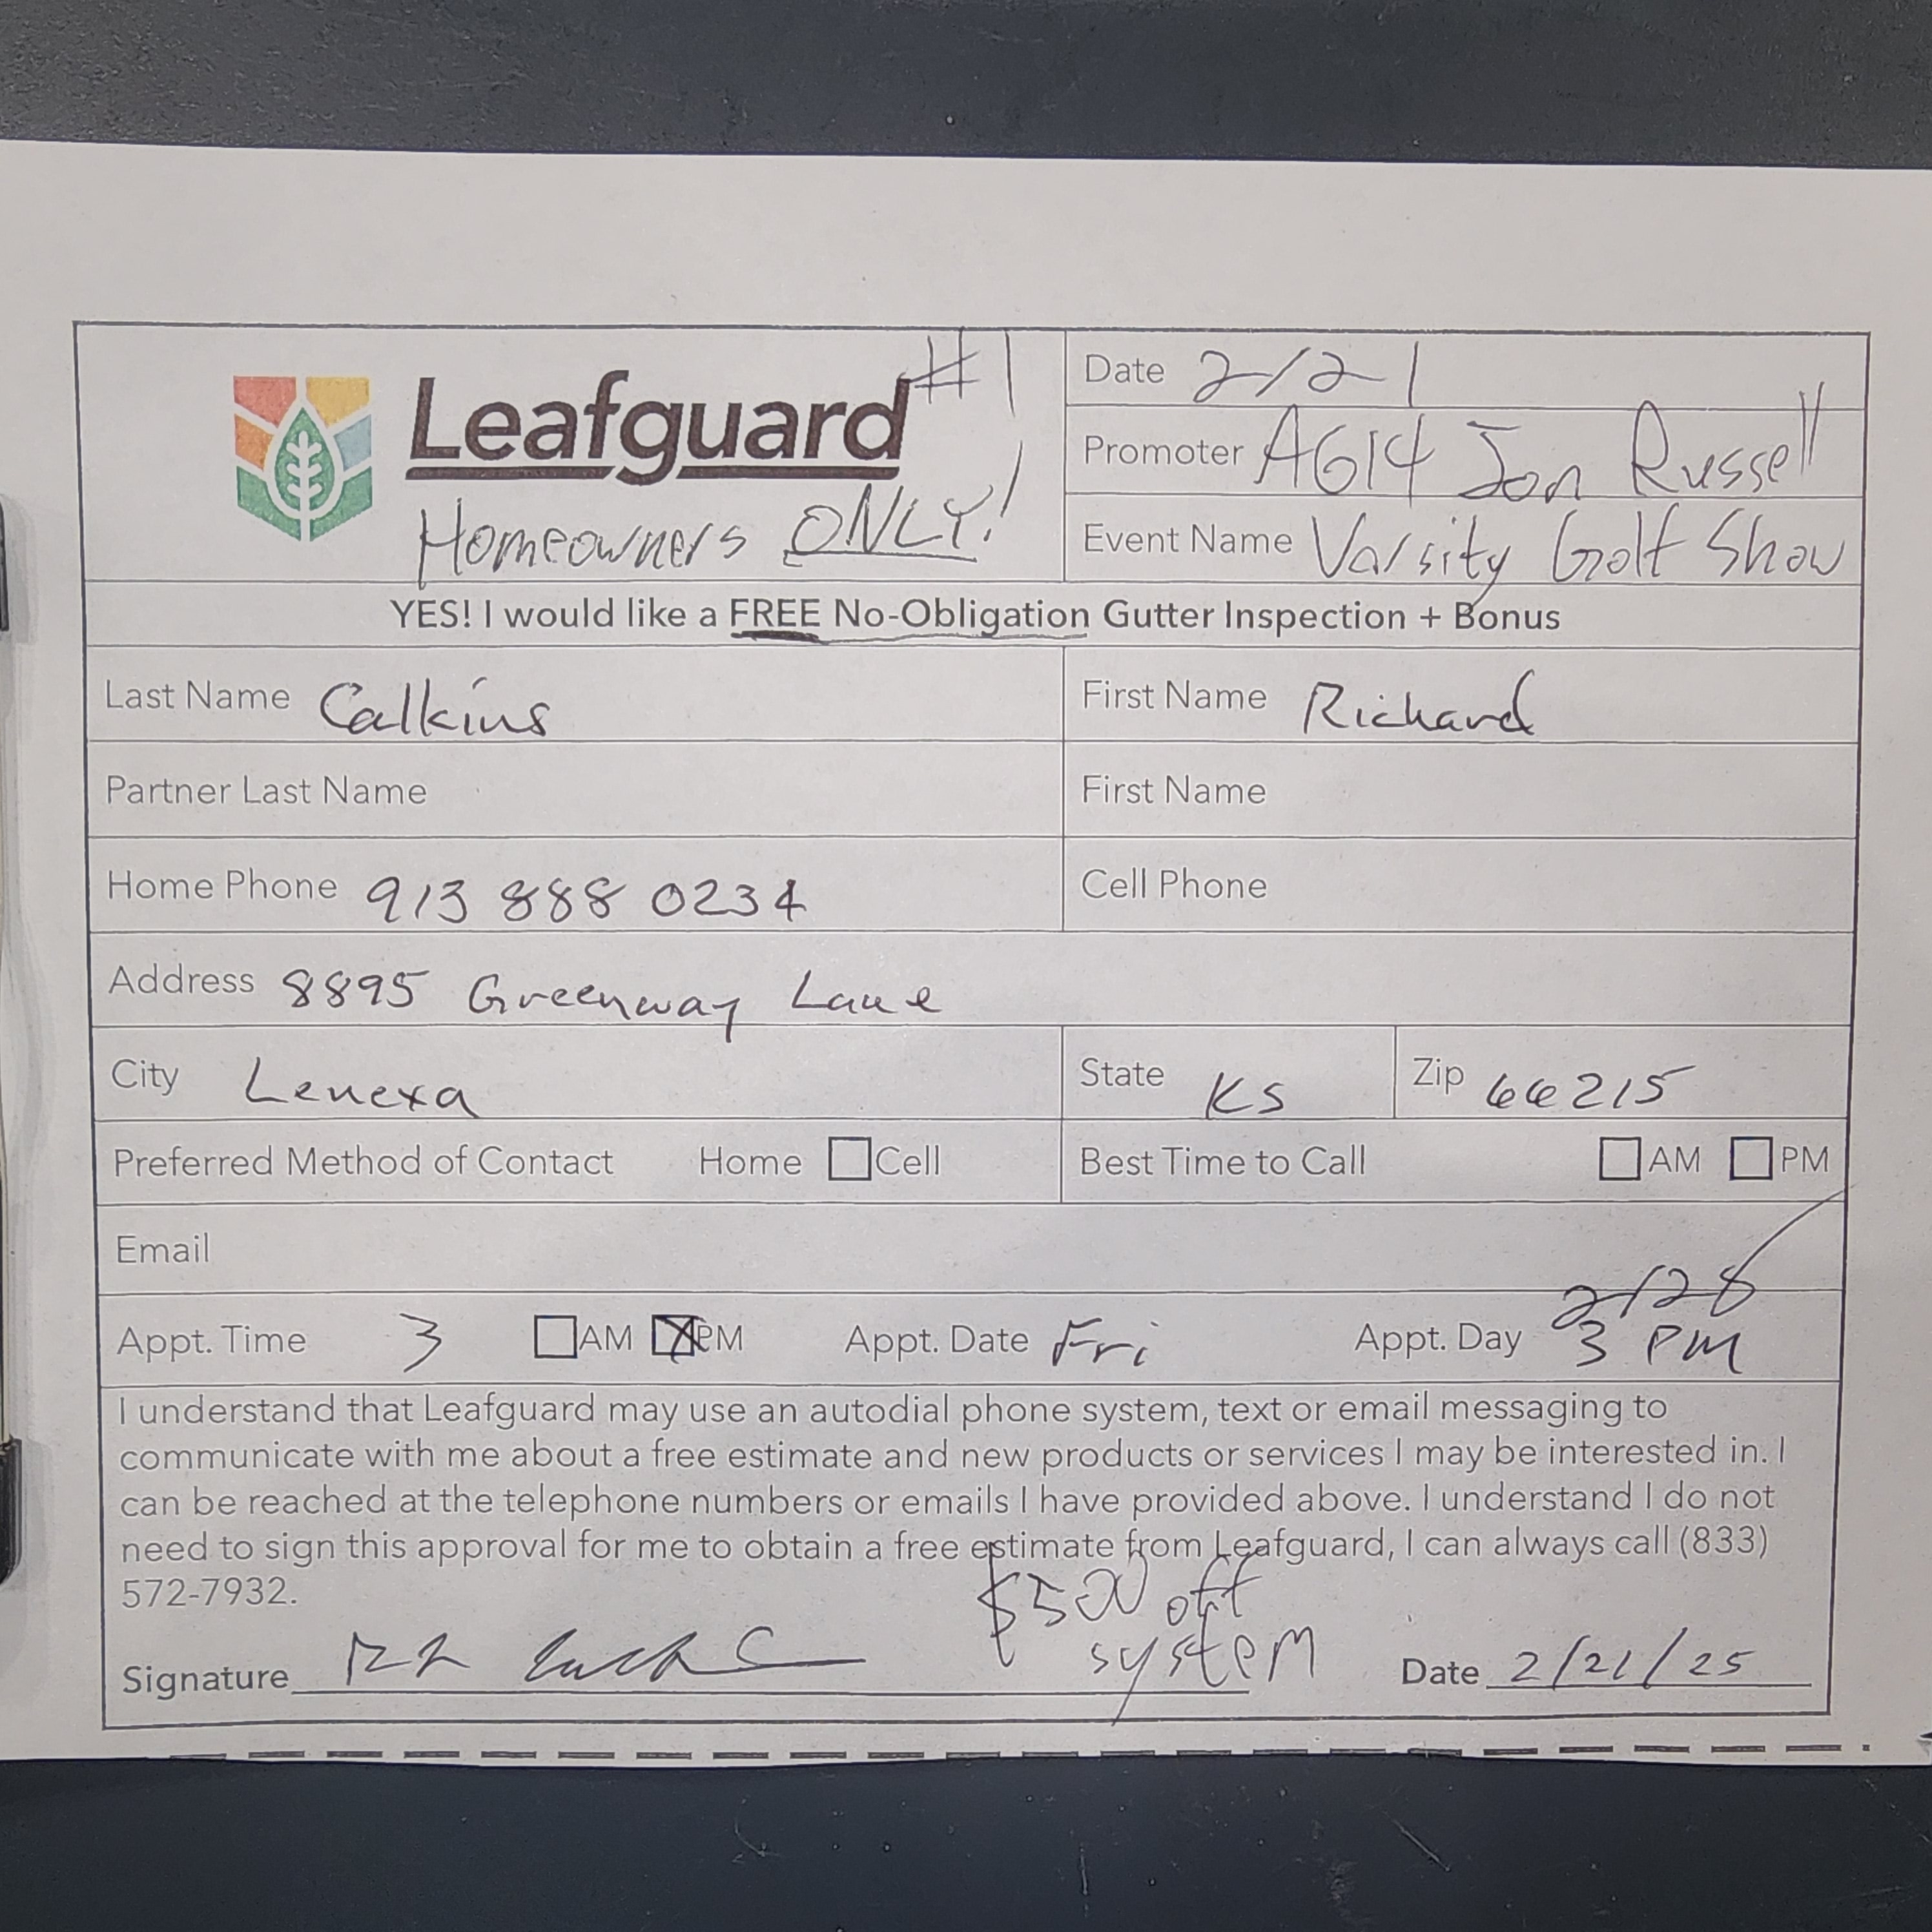 Leafguard #1
Homeowners ONLY!
Date 2/21
Promoter AG14 Jon Russell
Event Name Varsity Golf Show
YES! I would like a FREE No-Obligation Gutter Inspection + Bonus
Last Name Calkins First Name Richard
Partner Last Name First Name
Home Phone 913 888 0234 Cell Phone
Address 8895 Greenway Lane
City Lenexa State KS Zip 66215
Preferred Method of Contact Home Cell Best Time to Call AM PM
Email
2/28
Appt. Time 3 AM PM Appt. Date Fri Appt. Day 3 PM
I understand that Leafguard may use an autodial phone system, text or email messaging to
communicate with me about a free estimate and new products or services I may be interested in. I
can be reached at the telephone numbers or emails I have provided above. I understand I do not
need to sign this approval for me to obtain a free estimate from Leafguard, I can always call (833)
572-7932.
$500 off
system
Signature Date 2/21/25